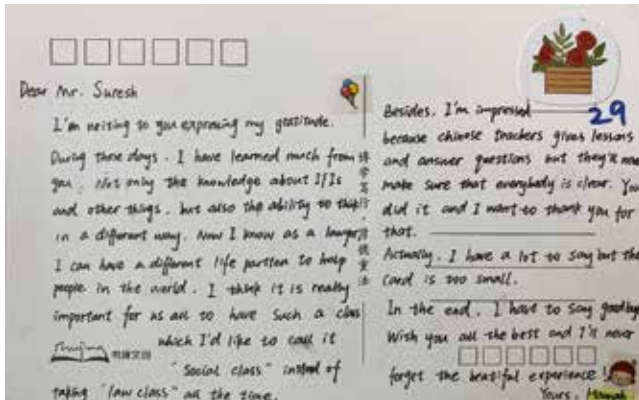 Dear Mr. Suresh
I'm writing to you expressing my gratitude.
During these days. I have learned much from
you, Not only the knowledge about IFIs
and other things, but also the ability to think
in a different way. Now I know as a lawyer
I can have a different life to help
people in the world. I think it is really
important for us all to have such a class
which I'd like to call it
"Social class" instead of
taking "law class" all the time.
29
Besides, I'm impressed
because chinese teachers gives lessons
and answer questions but they'll
make sure that everybody is clear. You
did it and I want to thank you for
that.
Actually, I have a lot to say but the
card is too small.
In the end, I have to say goodbye
Wish you all the best and I'll never
forget the beatiful experience!
Yours, Hannah